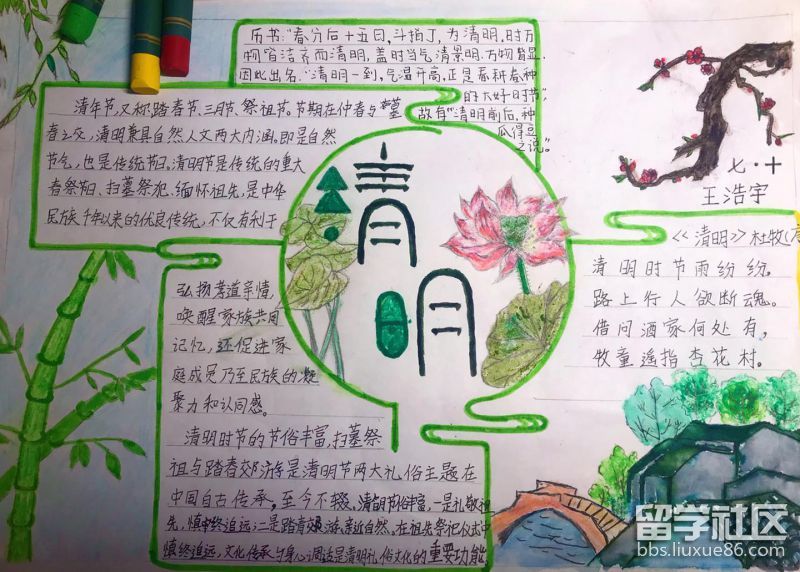 历书:"春分后十五日,斗指丁,为清明,时万
物皆洁齐而清明,盖时当气清景明,万物皆显,
因此出名。"清明一到,气温升高,正是春耕春种
的大好时节",
故有"清明前后,种
瓜得豆
之说"。
清年节,又称踏春节、三月节、祭祖节。节期在仲春与暮
春之交,清明兼具自然人文两大内涵。即是自然
节气,也是传统节日。清明节是传统的重大
春祭节日、扫墓祭祀、缅怀祖先,是中华
民族千年以来的优良传统,不仅有利于
弘扬孝道亲情,
唤醒家族共同
记忆,还促进家
庭成员乃至民族的凝
聚力和认同感。
清明时节的节俗丰富,扫墓祭
祖与踏春郊游是清明节两大礼俗主题在
中国自古传承,至今不辍。清明节俗丰富,一是礼敬祖
先,慎终追远;二是踏青郊游、亲近自然。在祖先祭祀仪式中
慎终追远,文化传承与身心调适是清明礼俗文化的重要功能
清明
七·十
王浩宇
《清明》杜牧(
清明时节雨纷纷。
路上行人欲断魂。
借问酒家何处有,
牧童遥指杏花村。
留学社区
bbs.liuxue86.com